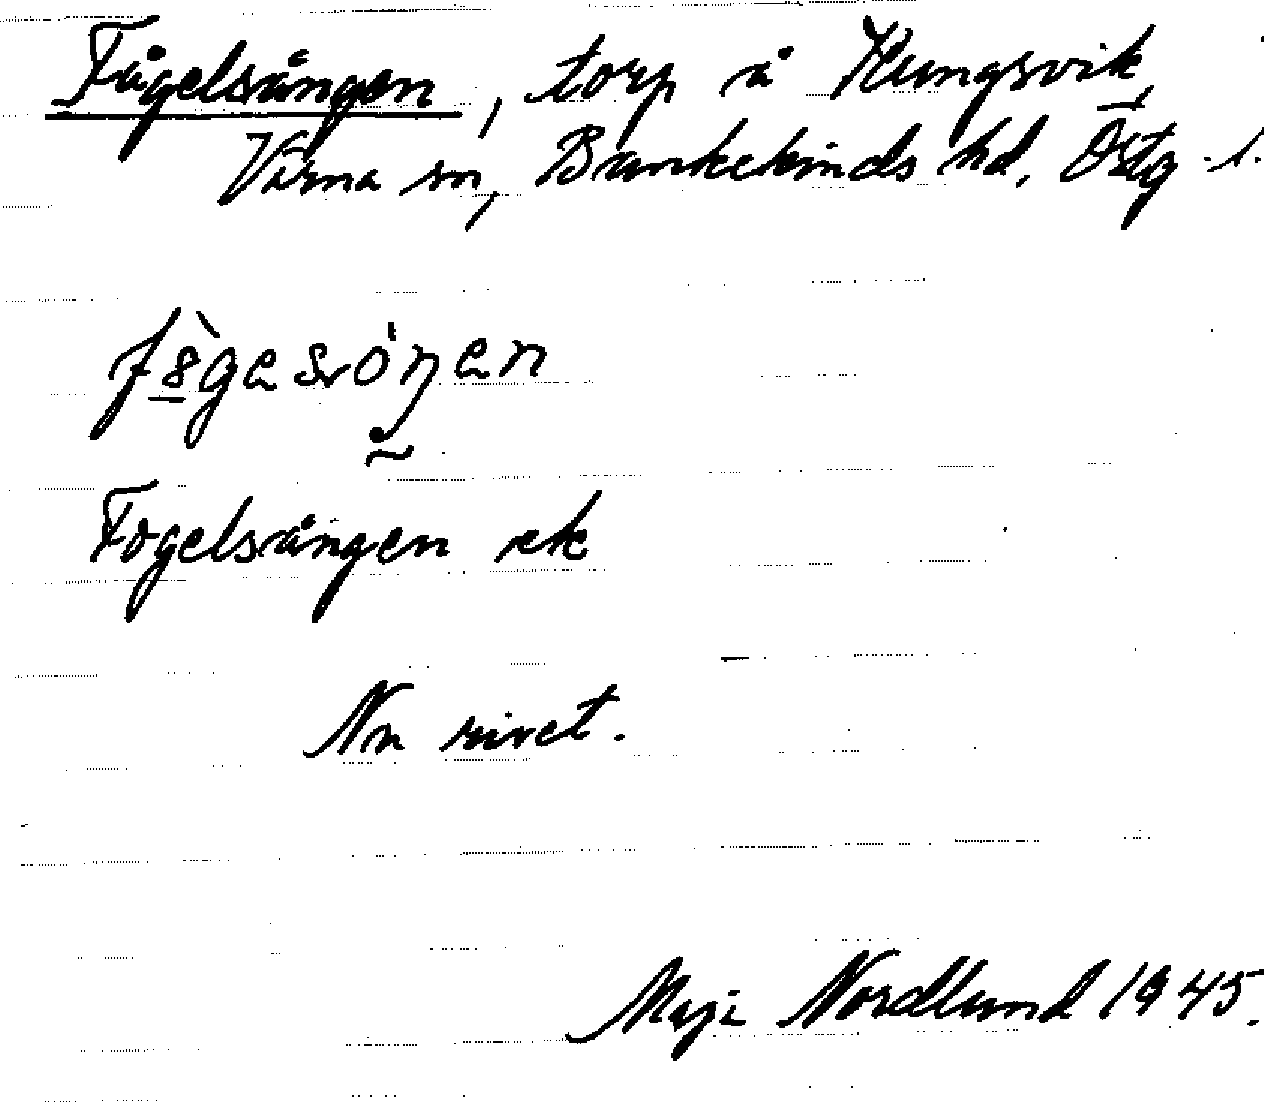 Fågelsången, torp å Kungsvik,
Värna sn, Bankekinds hd, Östg. l.
Fogelsången ek
Nu rivet.
Maji Nordlund 1945.